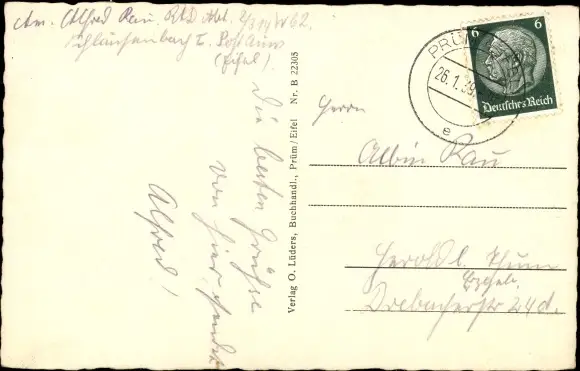 Am. Alfred Rau RAD Abt. 2/314 W62.
Schlausenbach ü. Post Auw
(Eifel)
Die besten Grüße
von hier sendet
Alfred!
Verlag O. Lüders, Buchhandl., Prüm/Eifel Nr. B 22305
PRÜM
26.1.39
e
6 6
Deutsches Reich
Herrn
Albin Rau
Herold b. Thum
Erzgeb.
Drebacherstr 24d.